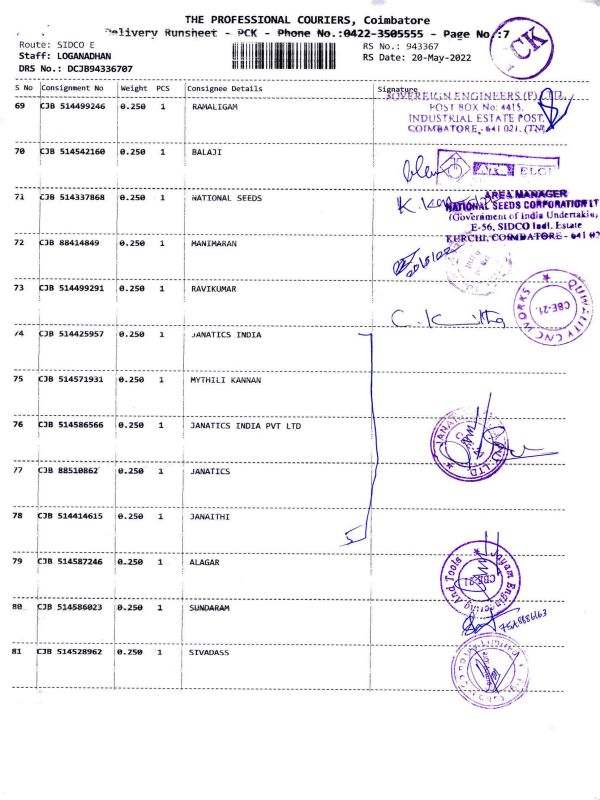 THE PROFESSIONAL COURIERS, Coimbatore
Delivery Runsheet - PCK - Phone No.:0422-3505555 - Page No.:7
CK
Route: SIDCO E
RS No.: 943367
Staff: LOGANADHAN
RS Date: 20-May-2022
DRS No.: DCJB94336707
S No Consignment No Weight PCS Consignee Details Signature
69 CJB 514499246 0.250 1 RAMALIGAM
SOVEREIGN ENGINEERS (P) LTD.
POST BOX No: 4415.
INDUSTRIAL ESTATE POST.
COIMBATORE, - 641 021. (TN)
70 CJB 514542160 0.250 1 BALAJI
ELGI
71 CJB 514337868 0.250 1 NATIONAL SEEDS
AREA MANAGER
NATIONAL SEEDS CORPORATION LT
(Government of India Undertakin
E-56, SIDCO Indl. Estate
KURCHI, COIMBATORE - 641 0
72 CJB 88414849 0.250 1 MANIMARAN
73 CJB 514499291 0.250 1 RAVIKUMAR
QUINALITY CNC WORKS ★
CBE-21.
74 CJB 514425957 0.250 1 JANATICS INDIA
75 CJB 514571931 0.250 1 MYTHILI KANNAN
76 CJB 514586566 0.250 1 JANATICS INDIA PVT LTD
77 CJB 88510862 0.250 1 JANATICS
78 CJB 514414615 0.250 1 JANAITHI
5
79 CJB 514587246 0.250 1 ALAGAR
Jayam Engineering And Tools ★
CBE-21
80 CJB 514586023 0.250 1 SUNDARAM
81 CJB 514528962 0.250 1 SIVADASS